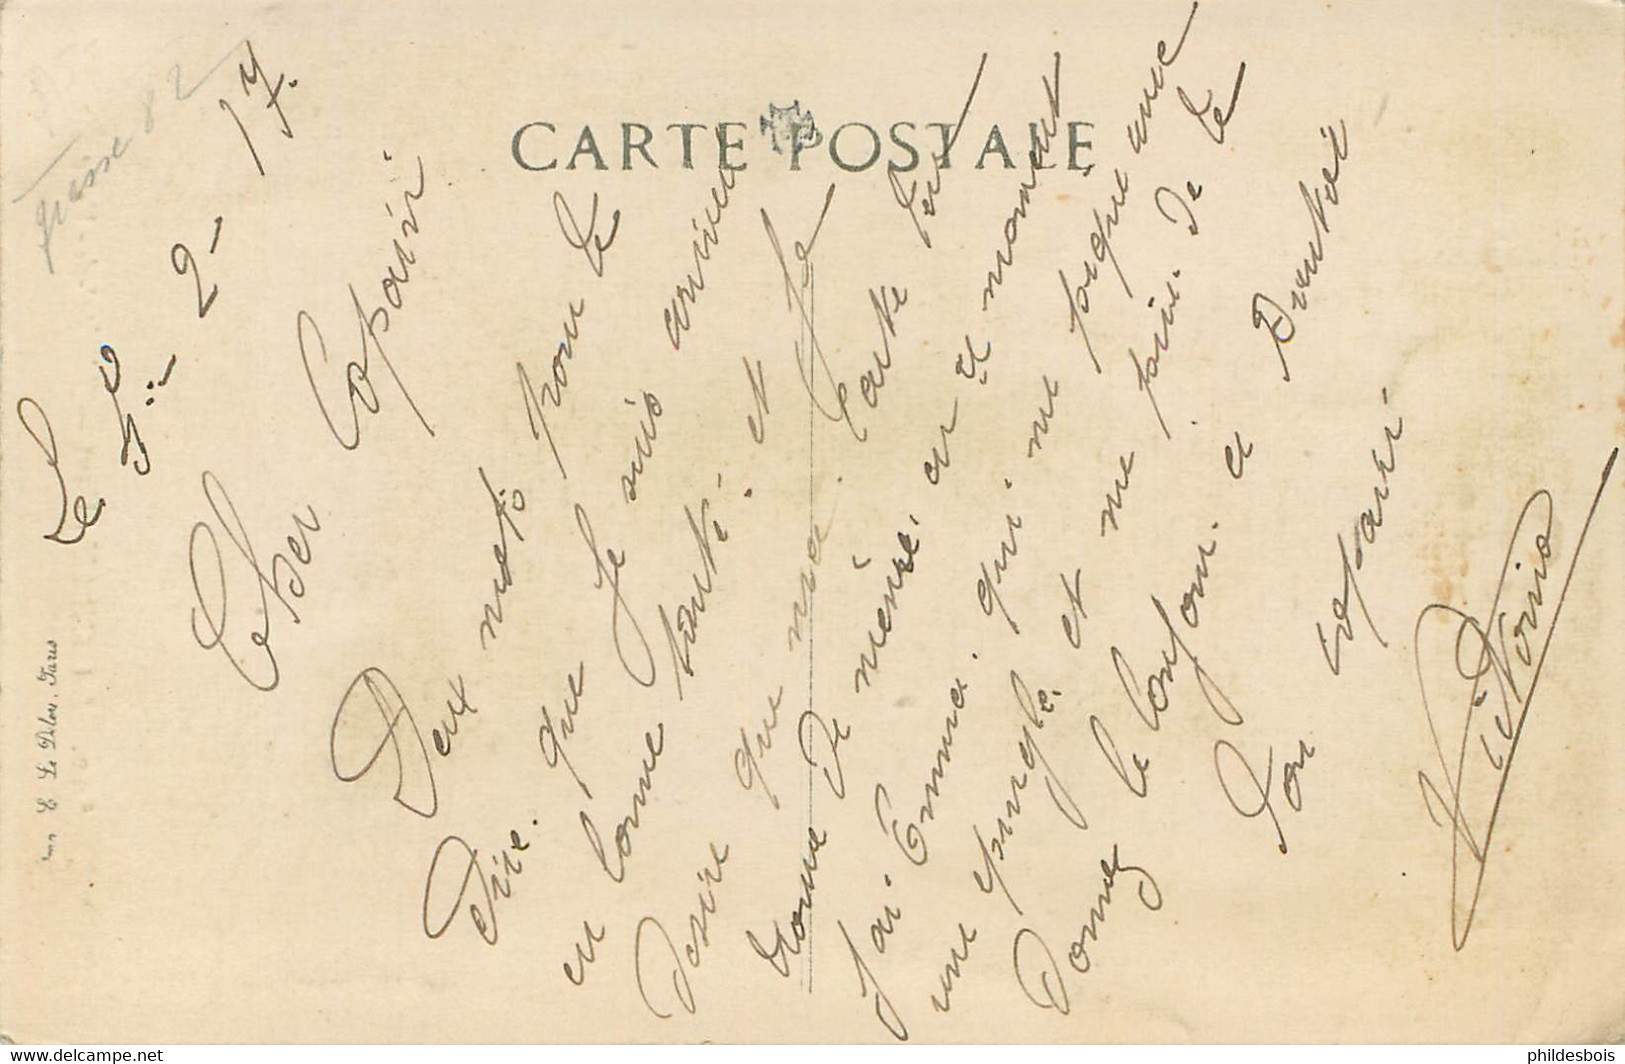 CARTE POSTALE
Le 5 - 2 - 17.
Cher Copain
Deux mots pour te
Dire. que Je suis arrivé
en bonne santé. et Je
Desire que ma carte
trouve De même, en ce moment
J'ai Emma. qui me
une epingle. et me De te
Donnez le bonjour. a
ton copain
Victorio
E. Le Deley. Paris
phildesbois
www.delcampe.net